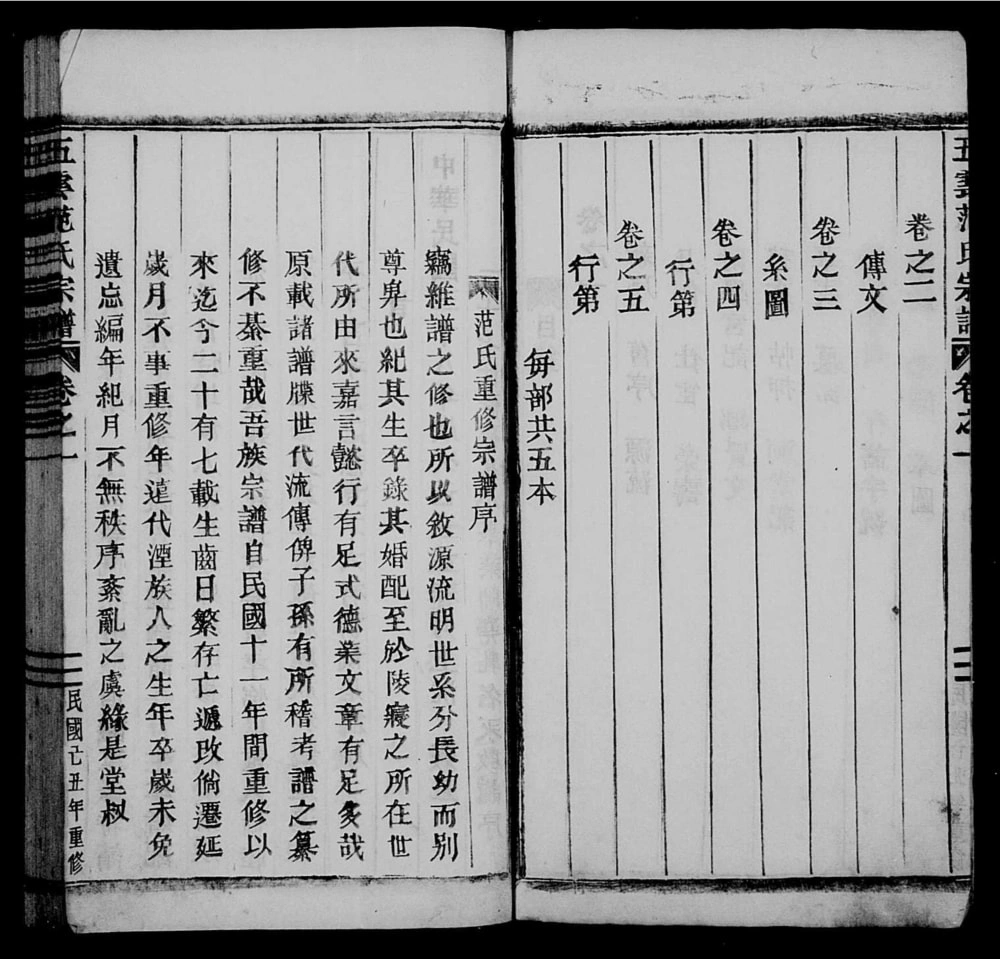 五雲范氏宗譜 卷之一
卷之二
傳文
卷之三
系圖
卷之四
行第
卷之五
行第
每部共五本
范氏重修宗譜序
竊維譜之修也所以敘源流明世系分長幼而別
尊卑也紀其生卒錄其婚配至於陵寢之所在世
代所由來嘉言懿行有足式德業文章有足多哉
原載諸譜牒世代流傳俾子孫有所稽考譜之纂
修不綦重哉吾族宗譜自民國十一年間重修以
來迄今二十有七載生齒日繁存亡遞改倘遷延
歲月不事重修年遠代湮族人之生年卒歲未免
遺忘編年紀月不無秩序紊亂之虞緣是堂叔
五雲范氏宗譜 卷之一 民國己丑年重修